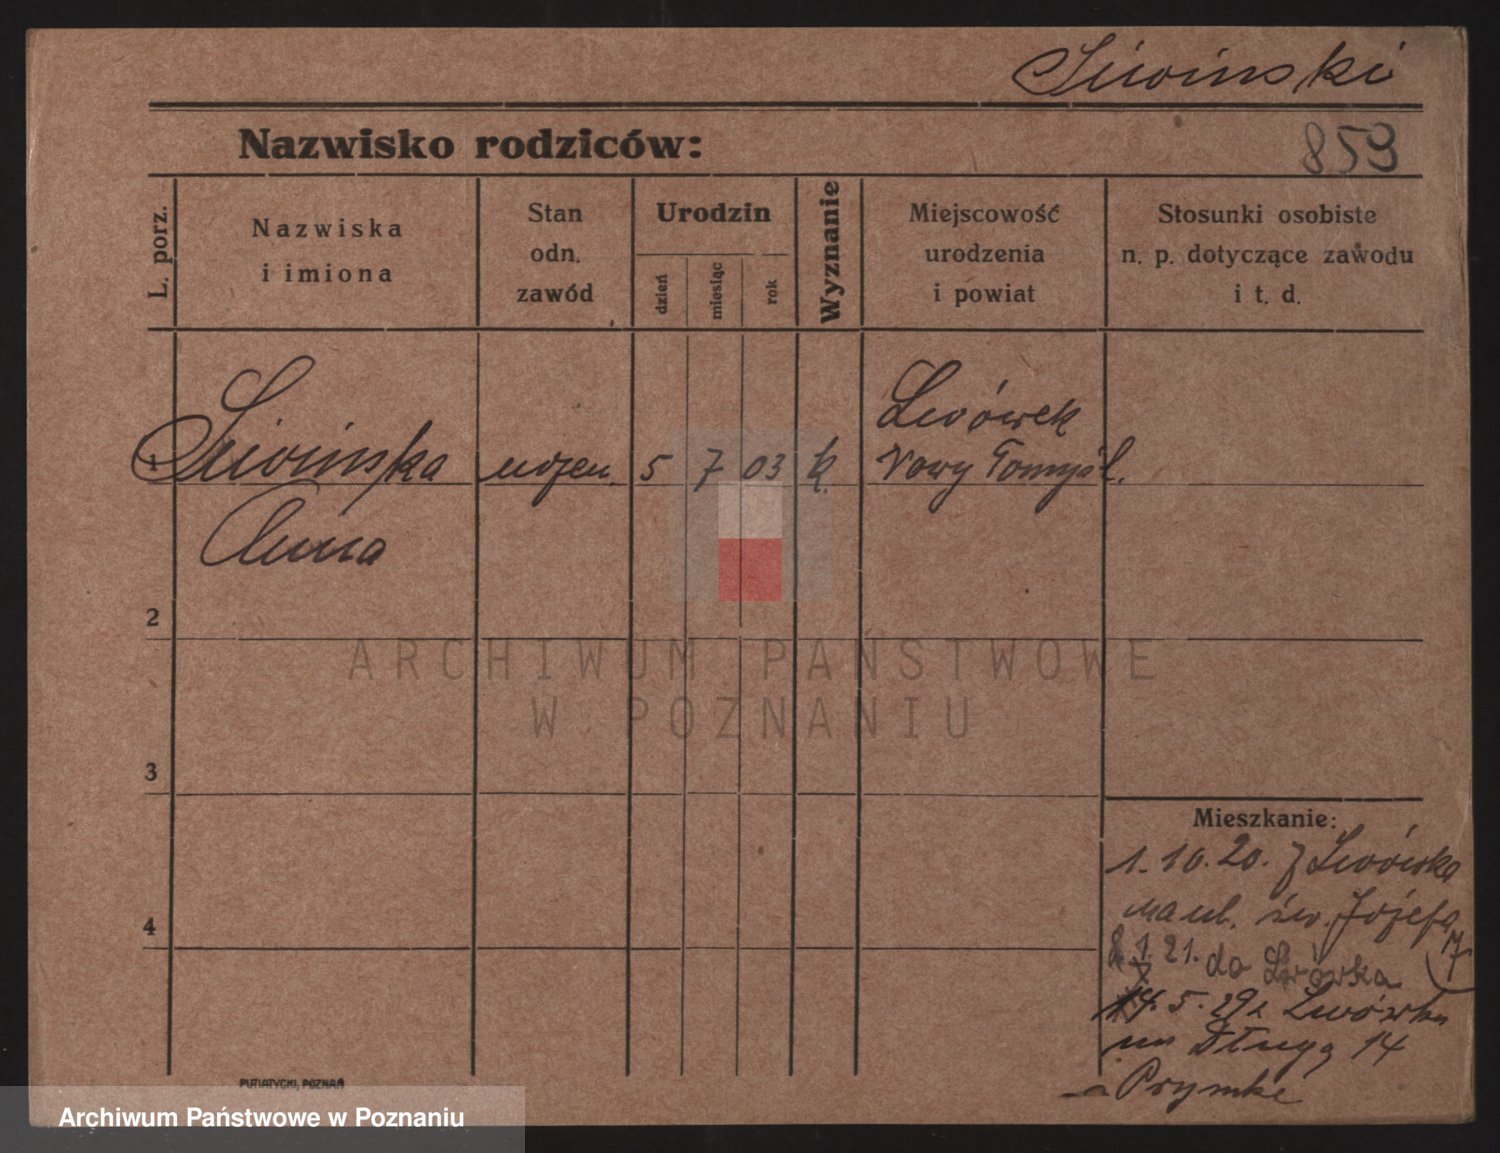 Siwinski
Nazwisko rodziców:
859
L. porz.
Nazwiska
i imiona
Stan
odn.
zawód
Urodzin
dzień
miesiąc
rok
Wyznanie
Miejscowość
urodzenia
i powiat
Stosunki osobiste
n. p. dotyczące zawodu
i t. d.
1 Siwińska 5 7 03 k. Lwówek
Nowy Tomyśl.
Anna
2
3
4
ARCHIWUM PAŃSTWOWE
W POZNANIU
Mieszkanie:
1.10.20. z Lwówka
na ul. św. Józefa
8.1.21. do Lwówka 7
14.5.29 z Lwówka
na Długą 14
Prymke
PUTIATYCKI, POZNAŃ
Archiwum Państwowe w Poznaniu